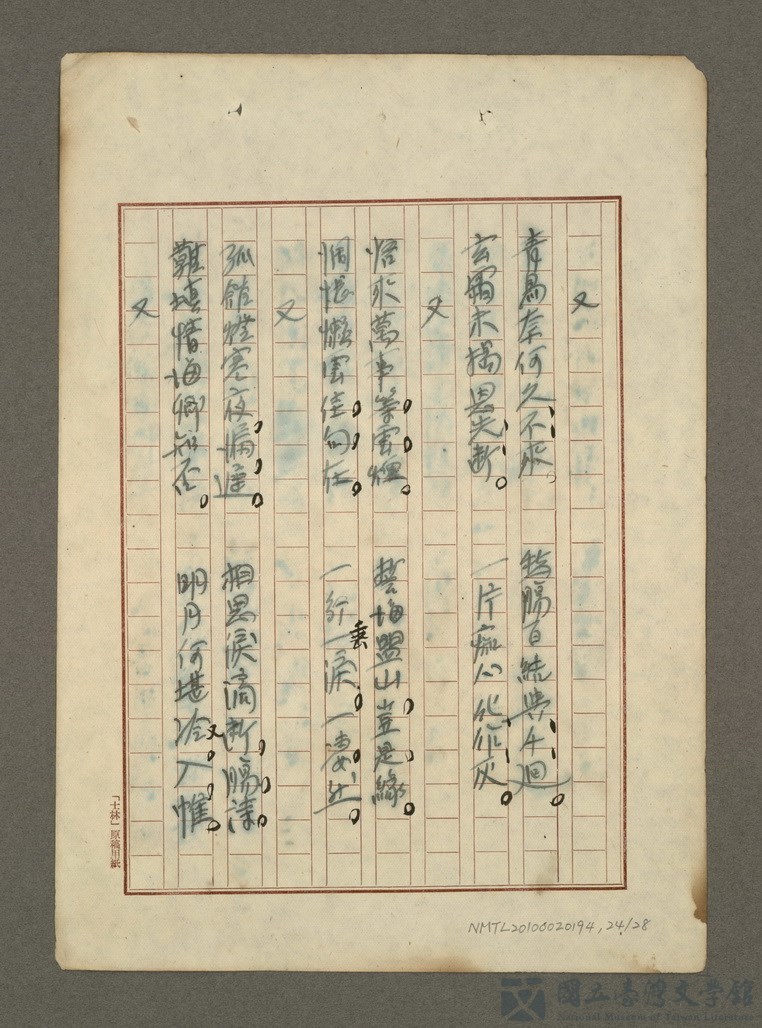 又
青鳥奈何久不來。愁腸百結與千迴。
玄霜未搗恩先斷。一片痴心化作灰。
又
悟來萬事等雲煙。誓海盟山豈是緣。
惆悵懶雲佳句在。一行一淚一凄然。
垂
又
孤館燈寒夜漏遲。相思淚滴斷腸詩。
難填情海卿知否。明月何堪冷入帷。
又
又
「士林」原稿用紙
NMTL20100020194, 24/28
國立臺灣文學館
National Museum of Taiwan Literature